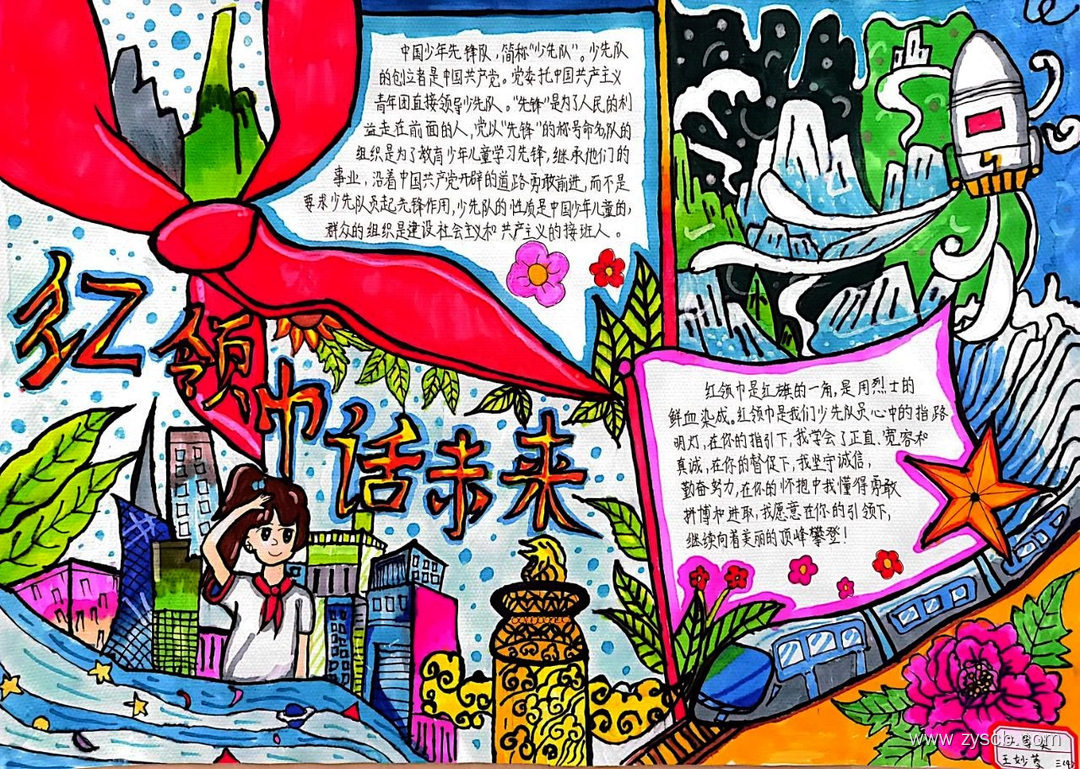 中国少年先锋队，简称"少先队"。少先队
的创立者是中国共产党。党委托中国共产主义
青年团直接领导少先队。"先锋"是为了人民的利
益走在前面的人，党以"先锋"的称号命名队的
组织是为了教育少年儿童学习先锋，继承他们的
事业，沿着中国共产党开辟的道路勇敢前进，而不是
要求少先队员起先锋作用，少先队的性质是中国少年儿童的，
群众的组织是建设社会主义和共产主义的接班人。
红领巾话未来
红领巾是红旗的一角，是用烈士的
鲜血染成。红领巾是我们少先队员心中的指路
明灯，在你的指引下，我学会了正直、宽容和
真诚，在你的督促下，我坚守诚信，
勤奋努力，在你的怀抱中我懂得勇敢
拼博和进取，我愿意在你的引领下，
继续向着美丽的顶峰攀登！
www.zyscb.com